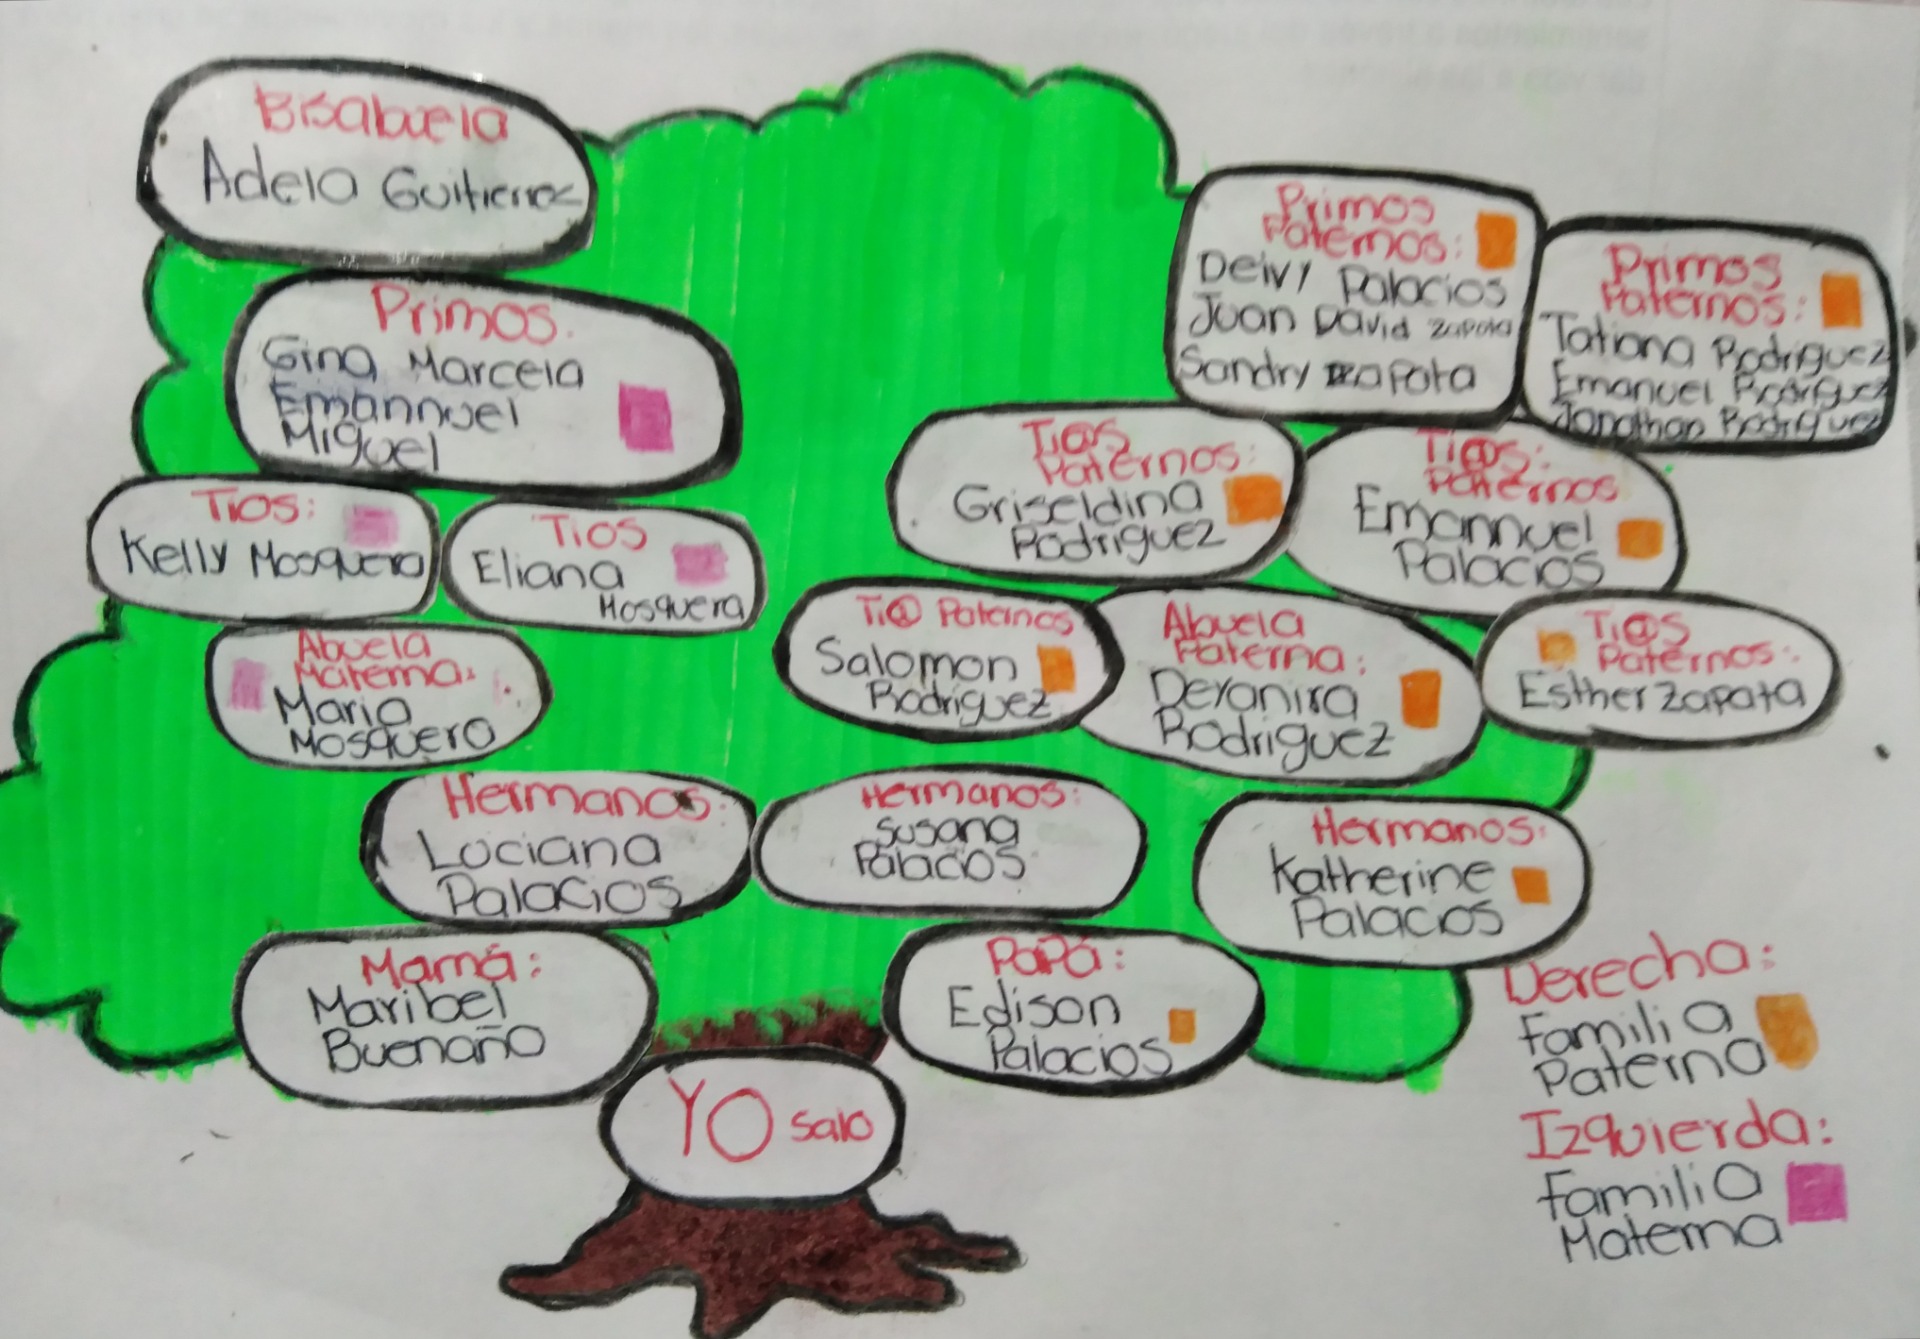 Bisabuela
Adela Guitierrez
Primos.
Gina Marcela
Emannuel
Miguel
Primos
Paternos:
Deivy Palacios
Juan David Zapata
Sandry Zapata
Primos
Paternos:
Tatiana Rodriguez
Emanuel Rodriguez
Jonathan Rodriguez
Tios:
Kelly Mosquera
Tios
Eliana
Mosquera
Ti@s
Paternos:
Griseldina
Rodriguez
Ti@s:
Paternos
Emannuel
Palacios
Abuela
Materna:
Maria
Mosquera
Ti@ Paternos
Salomon
Rodriguez
Abuela
Paterna:
Deyanira
Rodriguez
Ti@s
Paternos:
Esther Zapata
Hermanos:
Luciana
Palacios
Hermanos:
Susana
Palacios
Hermanos:
Katherine
Palacios
Mamá:
Maribel
Buenaño
Papá:
Edison
Palacios
YO Salo
Derecha:
Familia
Paterna
Izquierda:
Familia
Materna